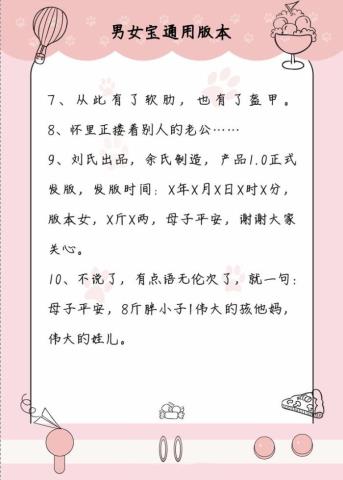 男女宝通用版本
7、从此有了软肋，也有了盔甲。
8、怀里正搂着别人的老公……
9、刘氏出品，余氏制造，产品1.0正式
发版，发版时间：X年X月X日X时X分，
版本女，X斤X两，母子平安，谢谢大家
关心。
10、不说了，有点语无伦次了，就一句：
母子平安，8斤胖小子1伟大的孩他妈，
伟大的娃儿。